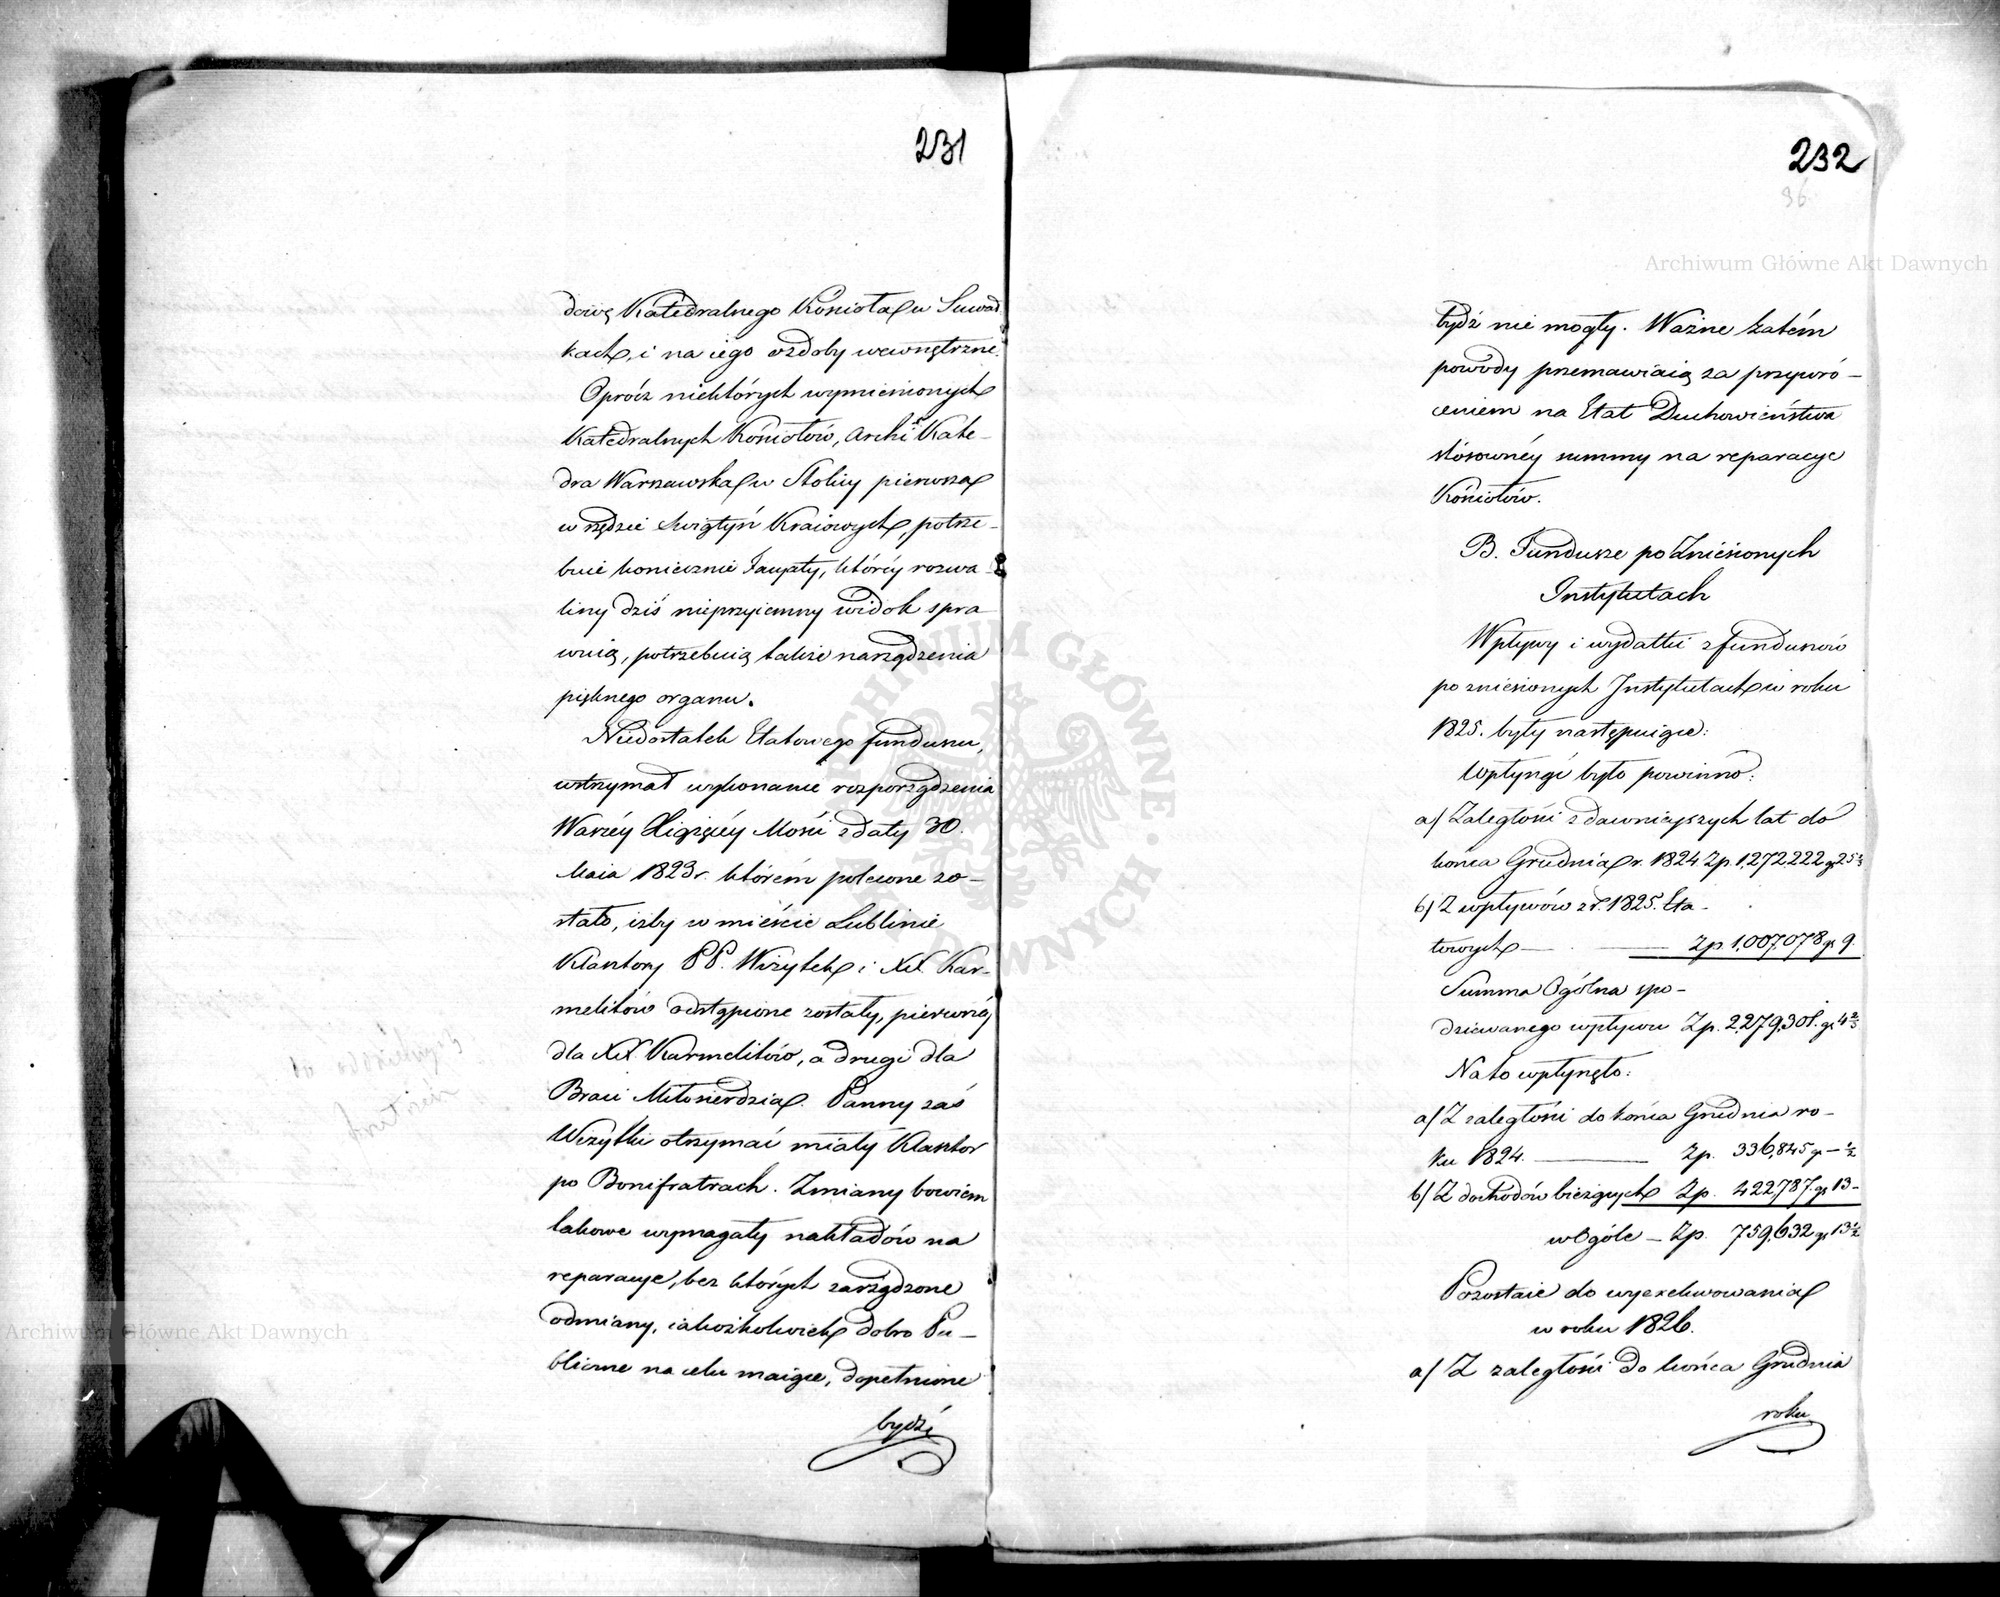 231
dowę Katedralnego Kościoła w Suwał
kach, i na iego ozdoby wewnętrzne.
Oprócz niektórych wymienionych
Katedralnych Kościołów, Archi Kate-
dra Warszawska w Stolicy pierwsza
w rzędzie Swiątyń Kraiowych, potrze-
buie koniecznie Facyaty, któréy rozwa-
liny dziś nieprzyiemny widok spra
wuią, potrzebuią także narządzenia
pięknego organu.
Niedostatek Etatowego funduszu,
wstrzymał wykonanie rozporządzenia
Waszéy Xiążęcéy Mości z daty 30.
Maia 1823 r. którém polecone zo-
stało, iżby w mieście Lublinie
Klasztory PP. Wizytek i XX. Kar-
melitów odstąpione zostały, pierwszy
dla XX. Karmelitów, a drugi dla
Braci Miłosierdzia. Panny zaś
Wizytki otrzymać miały Klasztor
po Bonifratrach. Zmiany bowiem
takowe wymagały nakładów na
reparacye, bez których zarządzone
odmiany, iakożkolwiek dobro Pu-
bliczne na celu maiące, dopełnione
bydź
232
96
bydź nie mogły. Ważne zatém
powody przemawiaią za przywró-
ceniem na Etat Duchowieństwa
stósownéy summy na reparacye
Kościołów.
B. Fundusze po Zniesionych
Instytutach
Wpływy i wydatki z funduszów
po zniesionych Instytutach w roku
1825. były następuiące:
Wpłynąć było powinno:
a/ Zaległości z dawnieyszych lat do
końca Grudnia r. 1824 Zp. 1,272,222 gr 25 2/3
b/ Z wpływów z r. 1825. Eta-
towych — Zp. 1,007,078 gr 9.
Summa Ogólna spo-
dziewanego wpływu Zp. 2,279,301. gr 4 2/3
Na to wpłynęło:
a/ Z zaległości do końca Grudnia ro-
ku 1824. — Zp. 336,845 gr — 1/2
b/ Z dochodów bieżących Zp. 422,787. gr 13 -
w Ogóle — Zp. 759,632 gr 13 1/2
Pozostaie do wyexekwowania
w roku 1826.
a/ Z zaległości do końca Grudnia
roku
Archiwum Główne Akt Dawnych
Archiwum Główne Akt Dawnych
ARCHIWUM GŁÓWNE AKT DAWNYCH